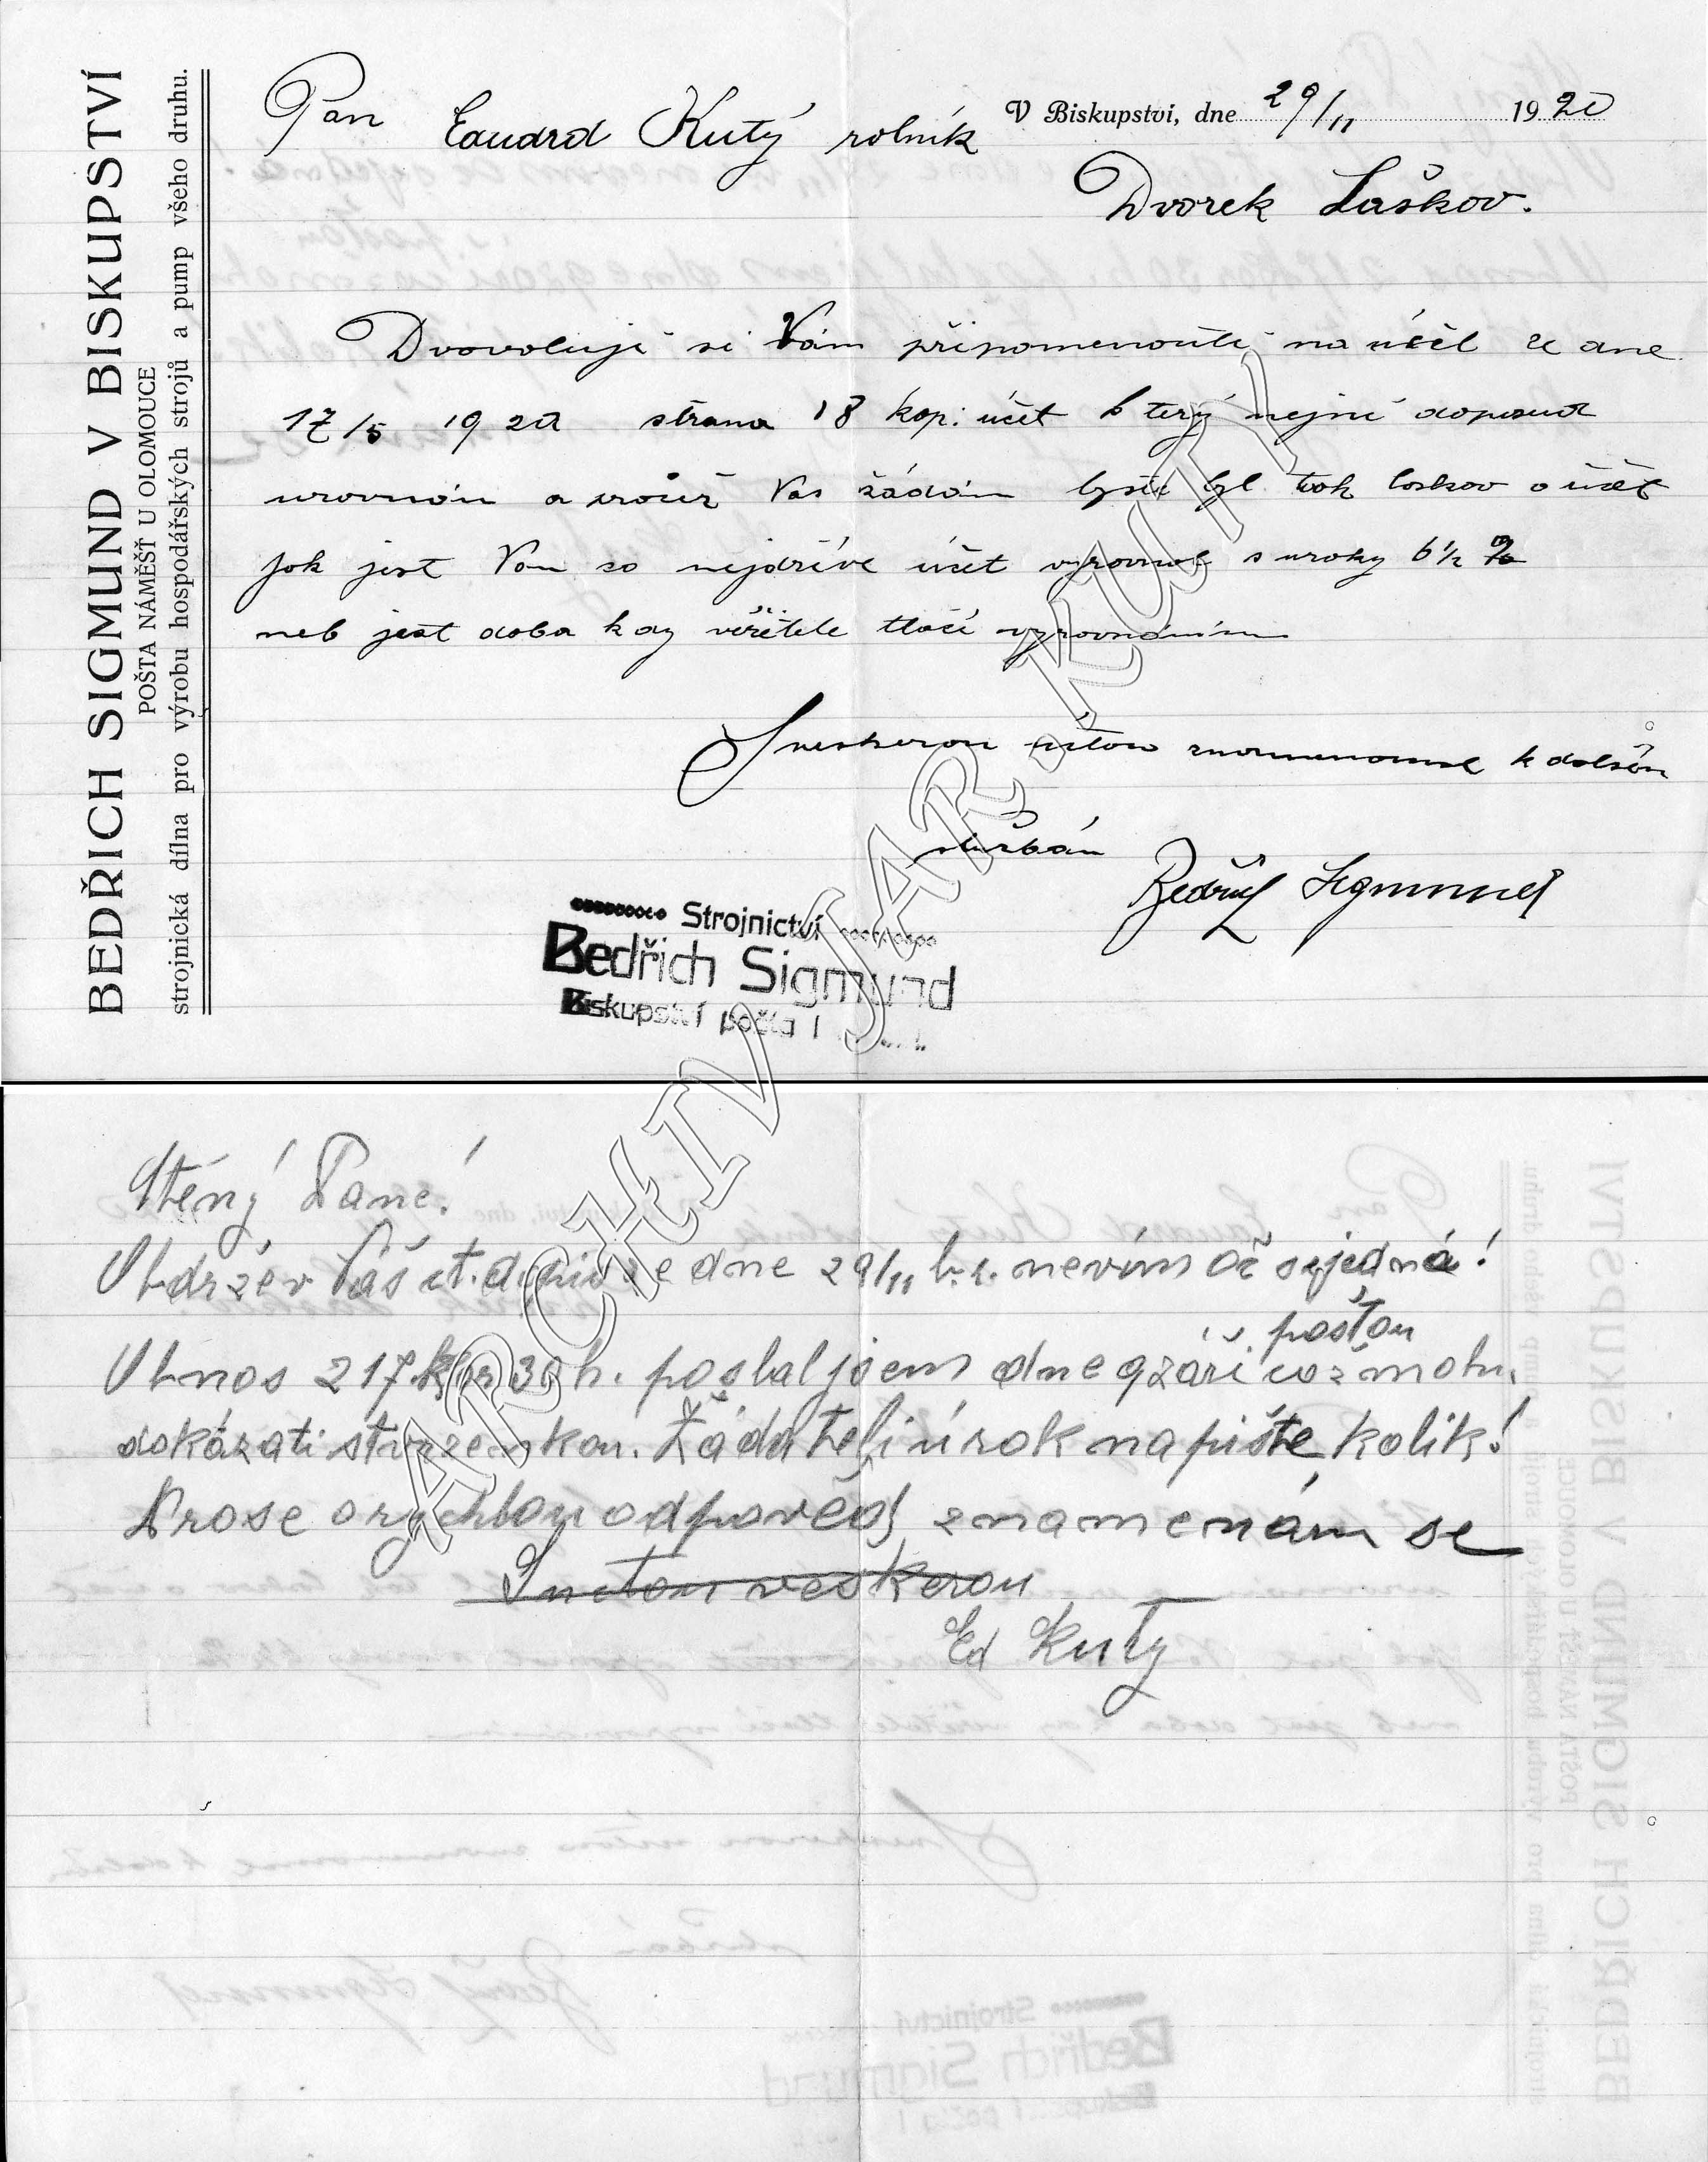 BEDŘICH SIGMUND V BISKUPSTVÍ
POŠTA NÁMĚŠŤ U OLOMOUCE
strojnická dílna pro výrobu hospodářských strojů a pump všeho druhu.
V Biskupství, dne 29/11 1920
Pan Eduard Kutý rolník
Dvorek Laškov.
Dvovoluji si Vám připomenouti na účet ze dne
17/5 1920 strana 18 kop: účet který nejní doposud
urovnán a Vás žádám byste byl tak laskav a účet
jak jest Vám co nejdříve účet vyrovnal s uroky 6½ %
neb jest doba kdy věřitele tlačí vyrovnáním
S veskerou úctou k dalším
službám
Bedřich Sigmund
Strojnictví
Bedřich Sigmund
Biskupství pošta
ARCHIV JAR. KUTÝ
Ctěný Pane!
Obdržev Váš ct. dopis ze dne 29/11 b.r. nevím oč sejedná!
poštou
Obnos 217 30 h. poslal jsem dne 9 září což mohu
dokázati stvrzenkou. Žádáteli úrok napište kolik!
Prose o rychlou odpověď znamenám se
S uctou veskerou
Ed Kutý